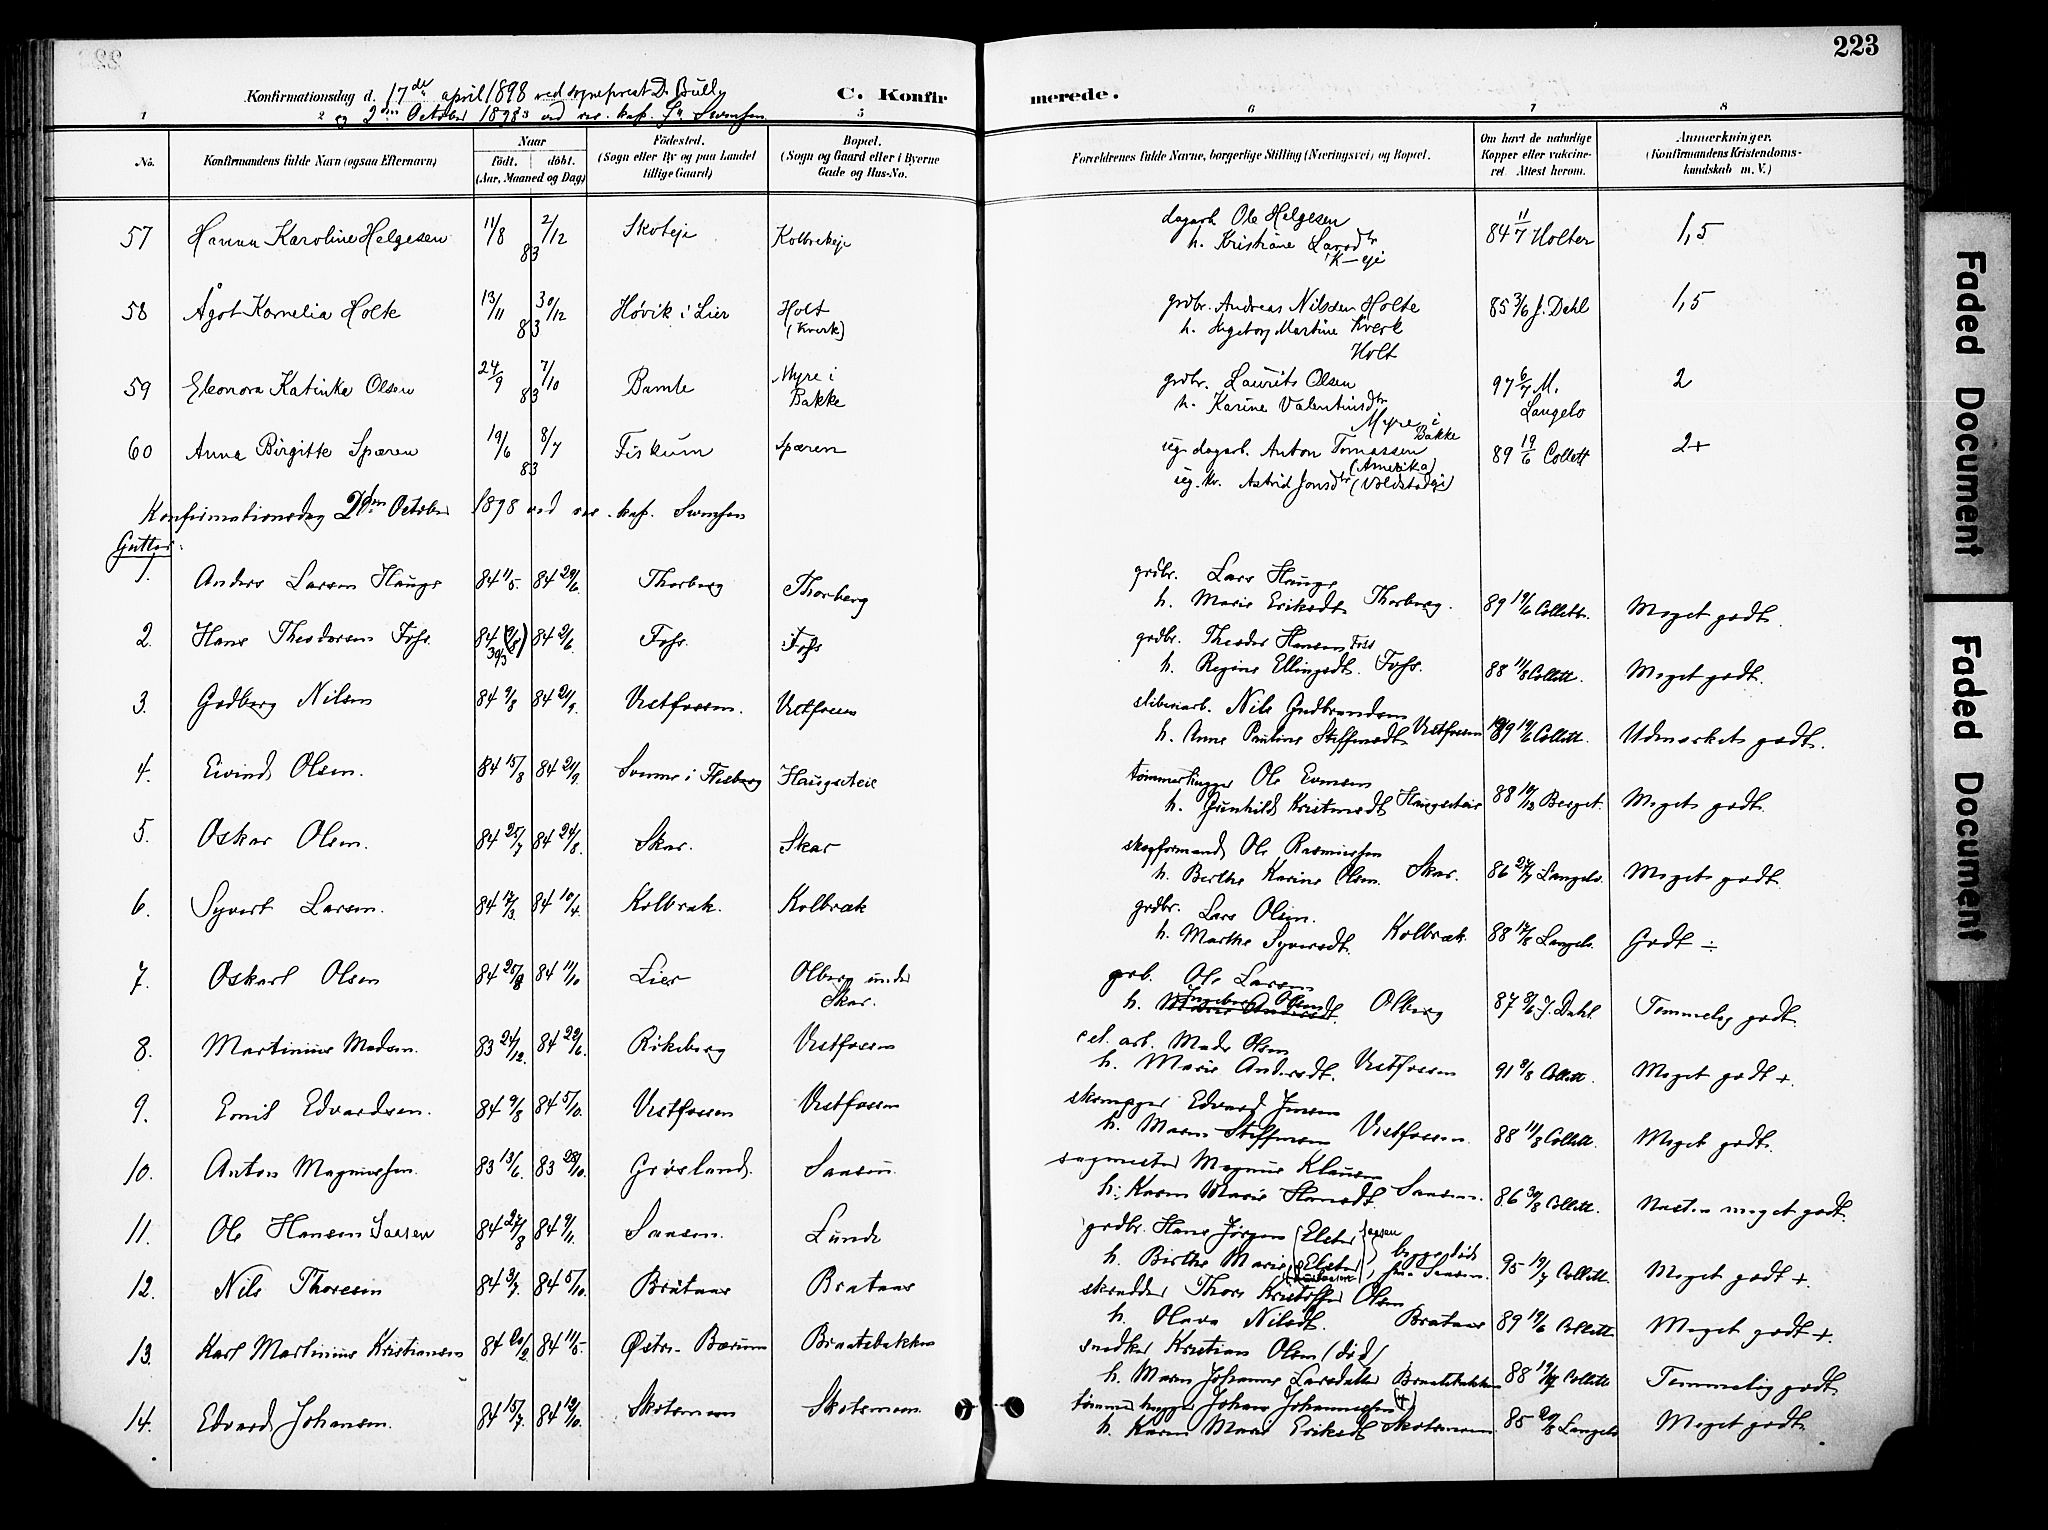 223
Konfirmationsdag d. 17de april 1898 ved sogneprest D. Bull
og 2den October 1898 ved res. kap. Svensen
C. Konfirmerede.
1 2 3 5 6 7 8
No. Konfirmandens fulde Navn (ogsaa Efternavn) Naar født. døbt. (Aar, Maaned og Dag) Fødested. (Sogn eller By og paa Landet tillige Gaard) Bopæl. (Sogn og Gaard eller i Byerne Gade og Hus-No. Forældrenes fulde Navne, borgerlige Stilling (Næringsvei) og Bopæl. Om havt de naturlige Kopper eller vaccineret. Attest herom. Anmærkninger. (Konfirmandens Kristendomskundskab m. V.)
57 Hanna Karoline Helgesen 11/8 2/12 83 Skoteje Kolbrekeje dagarb. Ole Helgesen
h. Kristiane Larsdtr K-eje 84 11/7 Holter 1,5
58 Ågot Kornelia Holte 13/11 30/12 83 Høvik i Lier Holt (Kverk) grdbr. Andreas Nilssen Holte
h. Ingeborg Martine Kverk Holt 85 3/6 J. Dahl 1,5
59 Eleonora Katinka Olsen 24/9 7/10 83 Bamle Myre i Bakke grdbr. Laurits Olsen
h. Karine Valentinsdtr Myre i Bakke 97 6/7 M. Langelo 2
60 Anna Birgitte Spæren 19/6 8/7 83 Fiskum Spæren ug. dagarb. Anton Tomassen (Amerika)
ug. kv. Astrid Jonsdtr 89 19/6 Collett 2+
Konfirmationsdag 2den October 1898 ved res. kap. Svensen
Gutter:
1. Anders Larsen Hauge 84 11/5. 84 29/6. Thorberg Thorberg grdbr. Lars Hauge
h. Marie Eriksdt. Thorberg. 89 19/6 Collett. Meget godt.
2. Hans Theodorsen Foss. 84 30/3 84 2/6. Foss. Foss grdbr. Theodor Hansen Foss
h. Regine Ellingsdt. Foss. 88 11/8 Collett. Meget godt.
3. Gudberg Nilsen 84 9/8 84 21/9. Vestfossen. Vestfossen sliberiarb. Nils Gudbrandsen
h. Anne Pauline Steffensdt. Vestfossen 89 19/6 Collett. Udmerket godt.
4. Eivind Olsen. 84 15/8 84 21/9. Svenne i Flesberg Haugseteie tømmerhugger Ole Evensen
h. Gunhild Kristensdt. Haugseteie 88 19/12 Berget. Meget godt.
5. Oskar Olsen. 84 25/7 84 24/8. Skar. Skar skogformand Ole Rasmussen
h. Berthe Karine Olsen. Skar. 86 27/7 Langelo. Meget godt.
6. Syvert Larsen. 84 17/3. 84 10/4. Kolbræk. Kolbræk grdbr. Lars Olsen.
h. Marthe Syversdt. Kolbræk. 88 17/8 Langelo. Godt ÷
7. Oskarl Olsen 84 25/8 84 11/10 Lier Olberg under Skar. grb. Ole Larsen
h. Ingeborg Olsen Olberg 87 9/6 J. Dahl. Temmelig godt.
8. Martinius Madsen. 83 24/12. 84 29/6. Rikeberg Vestfossen cel. arb. Mads Olsen
h. Marie Andersdt. Vestfossen 91 9/8 Collett. Meget godt +.
9. Emil Edvardsen. 84 9/8 84 5/10. Vestfossen Vestfossen skomager Edvard Jensen
h. Maren Steffensen Vestfossen. 88 11/8 Collett. Meget godt.
10. Anton Magnussen. 83 13/6. 83 28/10. Grøsland. Saasen. sagmester Magnus Klausen
h. Karen Marie Hansdt. Saasen. 86 30/8 Collett. Næsten meget godt.
11. Ole Hansen Saasen 84 27/8 84 9/11. Saasen. Lunde grdbr. Hans Jørgen (Elster)
h. Birthe Marie (Elster) begge døde fra Saasen. 95 19/7 Collett. Meget godt +.
12. Nils Thoresen 84 3/7. 84 5/10. Bråtaas Brataas skrædder Thore Kristoffer Olsen
h. Olava Nilsdt. Brataas 89 19/6 Collett. Meget godt +.
13. Karl Martinius Kristiansen 84 20/2. 84 11/5. Østre Bærum Braatebakken snedker Kristian Olsen (død)
h. Maren Johanne Larsdatter Braatebakken 88 19/4 Collett. Temmelig godt.
14. Edvard Johansen. 84 15/7. 84 19/10. Skotsmoen Skotsmoen. tømmerhugger Johan Johannessen (+)
h. Karen Marie Eriksdt. Skotsmoen. 85 20/8 Langelo Meget godt.
Faded Document
Faded Document